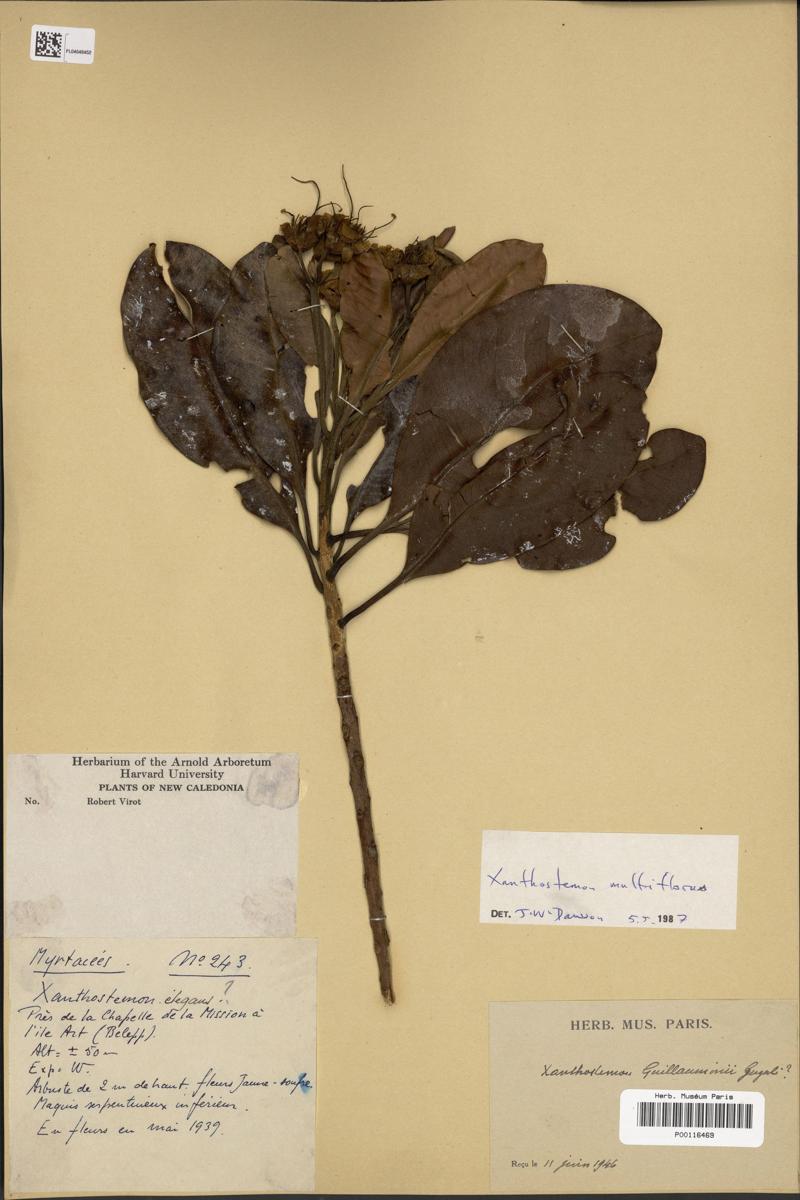 PL0404945Z
Herbarium of the Arnold Arboretum
Harvard University
PLANTS OF NEW CALEDONIA
No. Robert Virot
Myrtacées. No 243.
Xanthostemon élegans?
Près de la Chapelle de la Mission à
l'ile Art (Belepp).
Alt = ± 50 m
Exp = W.
Arbuste de 2 m de haut. fleurs Jaune-soufre
Maquis serpentineux inférieur.
En fleurs en mai 1939.
Xanthostemon multiflorus
DET. J.W. Dawson 5.5.1987
HERB. MUS. PARIS.
Xanthostemon Guillauminii Gugerli?
Herb. Muséum Paris
P00116469
Reçu le 11 juin 1946